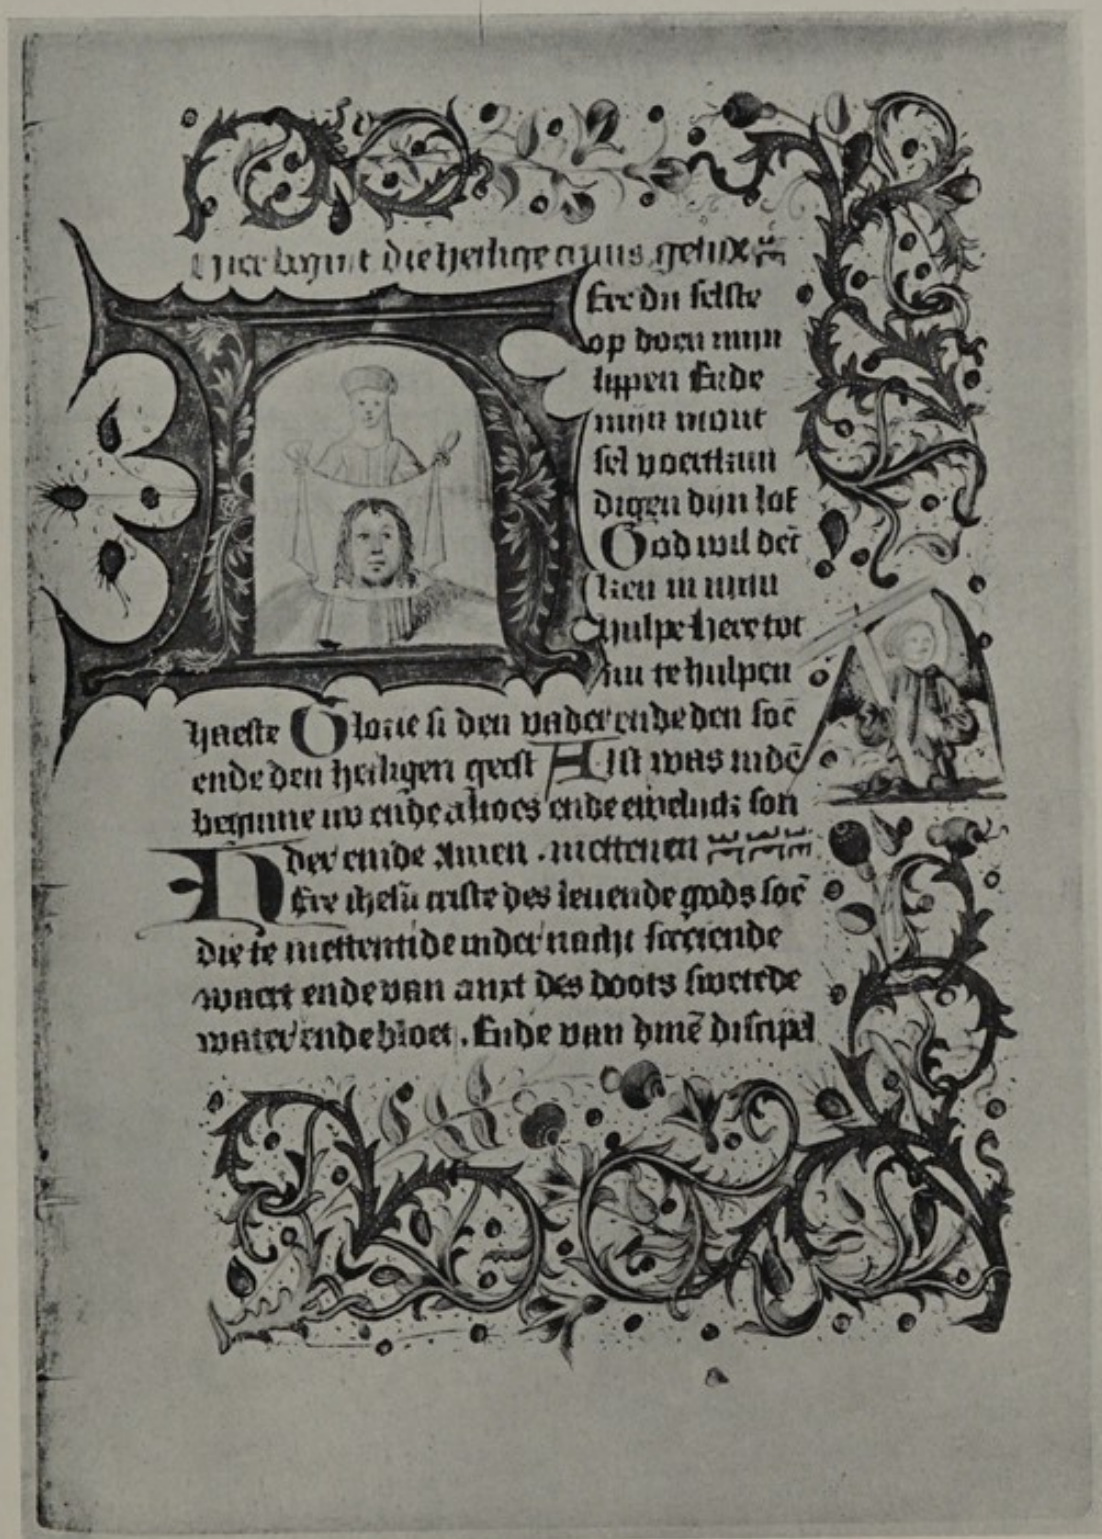 hier begint die heilige cruus getijt
Ere du selste
op doen mijn
lippen Ende
mijn mont
sel voertkun
digen dijn lof
God wil den
ken in mijn
hulpe here tot
mi te hulpen
haeste Glorie si den vader ende den soē
ende den heiligen geest Alst was indē
beginne nv ende altoes ende ewelic; son
der einde Amen . mettenen
Ere ihesū criste des leuende gods soē
die te mettentide inder nacht screiende
waert ende van anxt des doots swetede
water ende bloet . Ende van dinē discipel